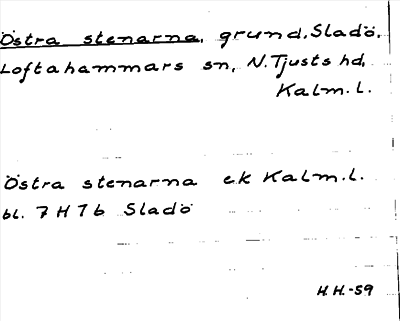 Östra stenarna, grund, Sladö.
Loftahammars sn, N. Tjusts hd,
Kalm. l.
Östra stenarna ek Kalm. l.
bl. 7 H 7 b Sladö
H. H. -59